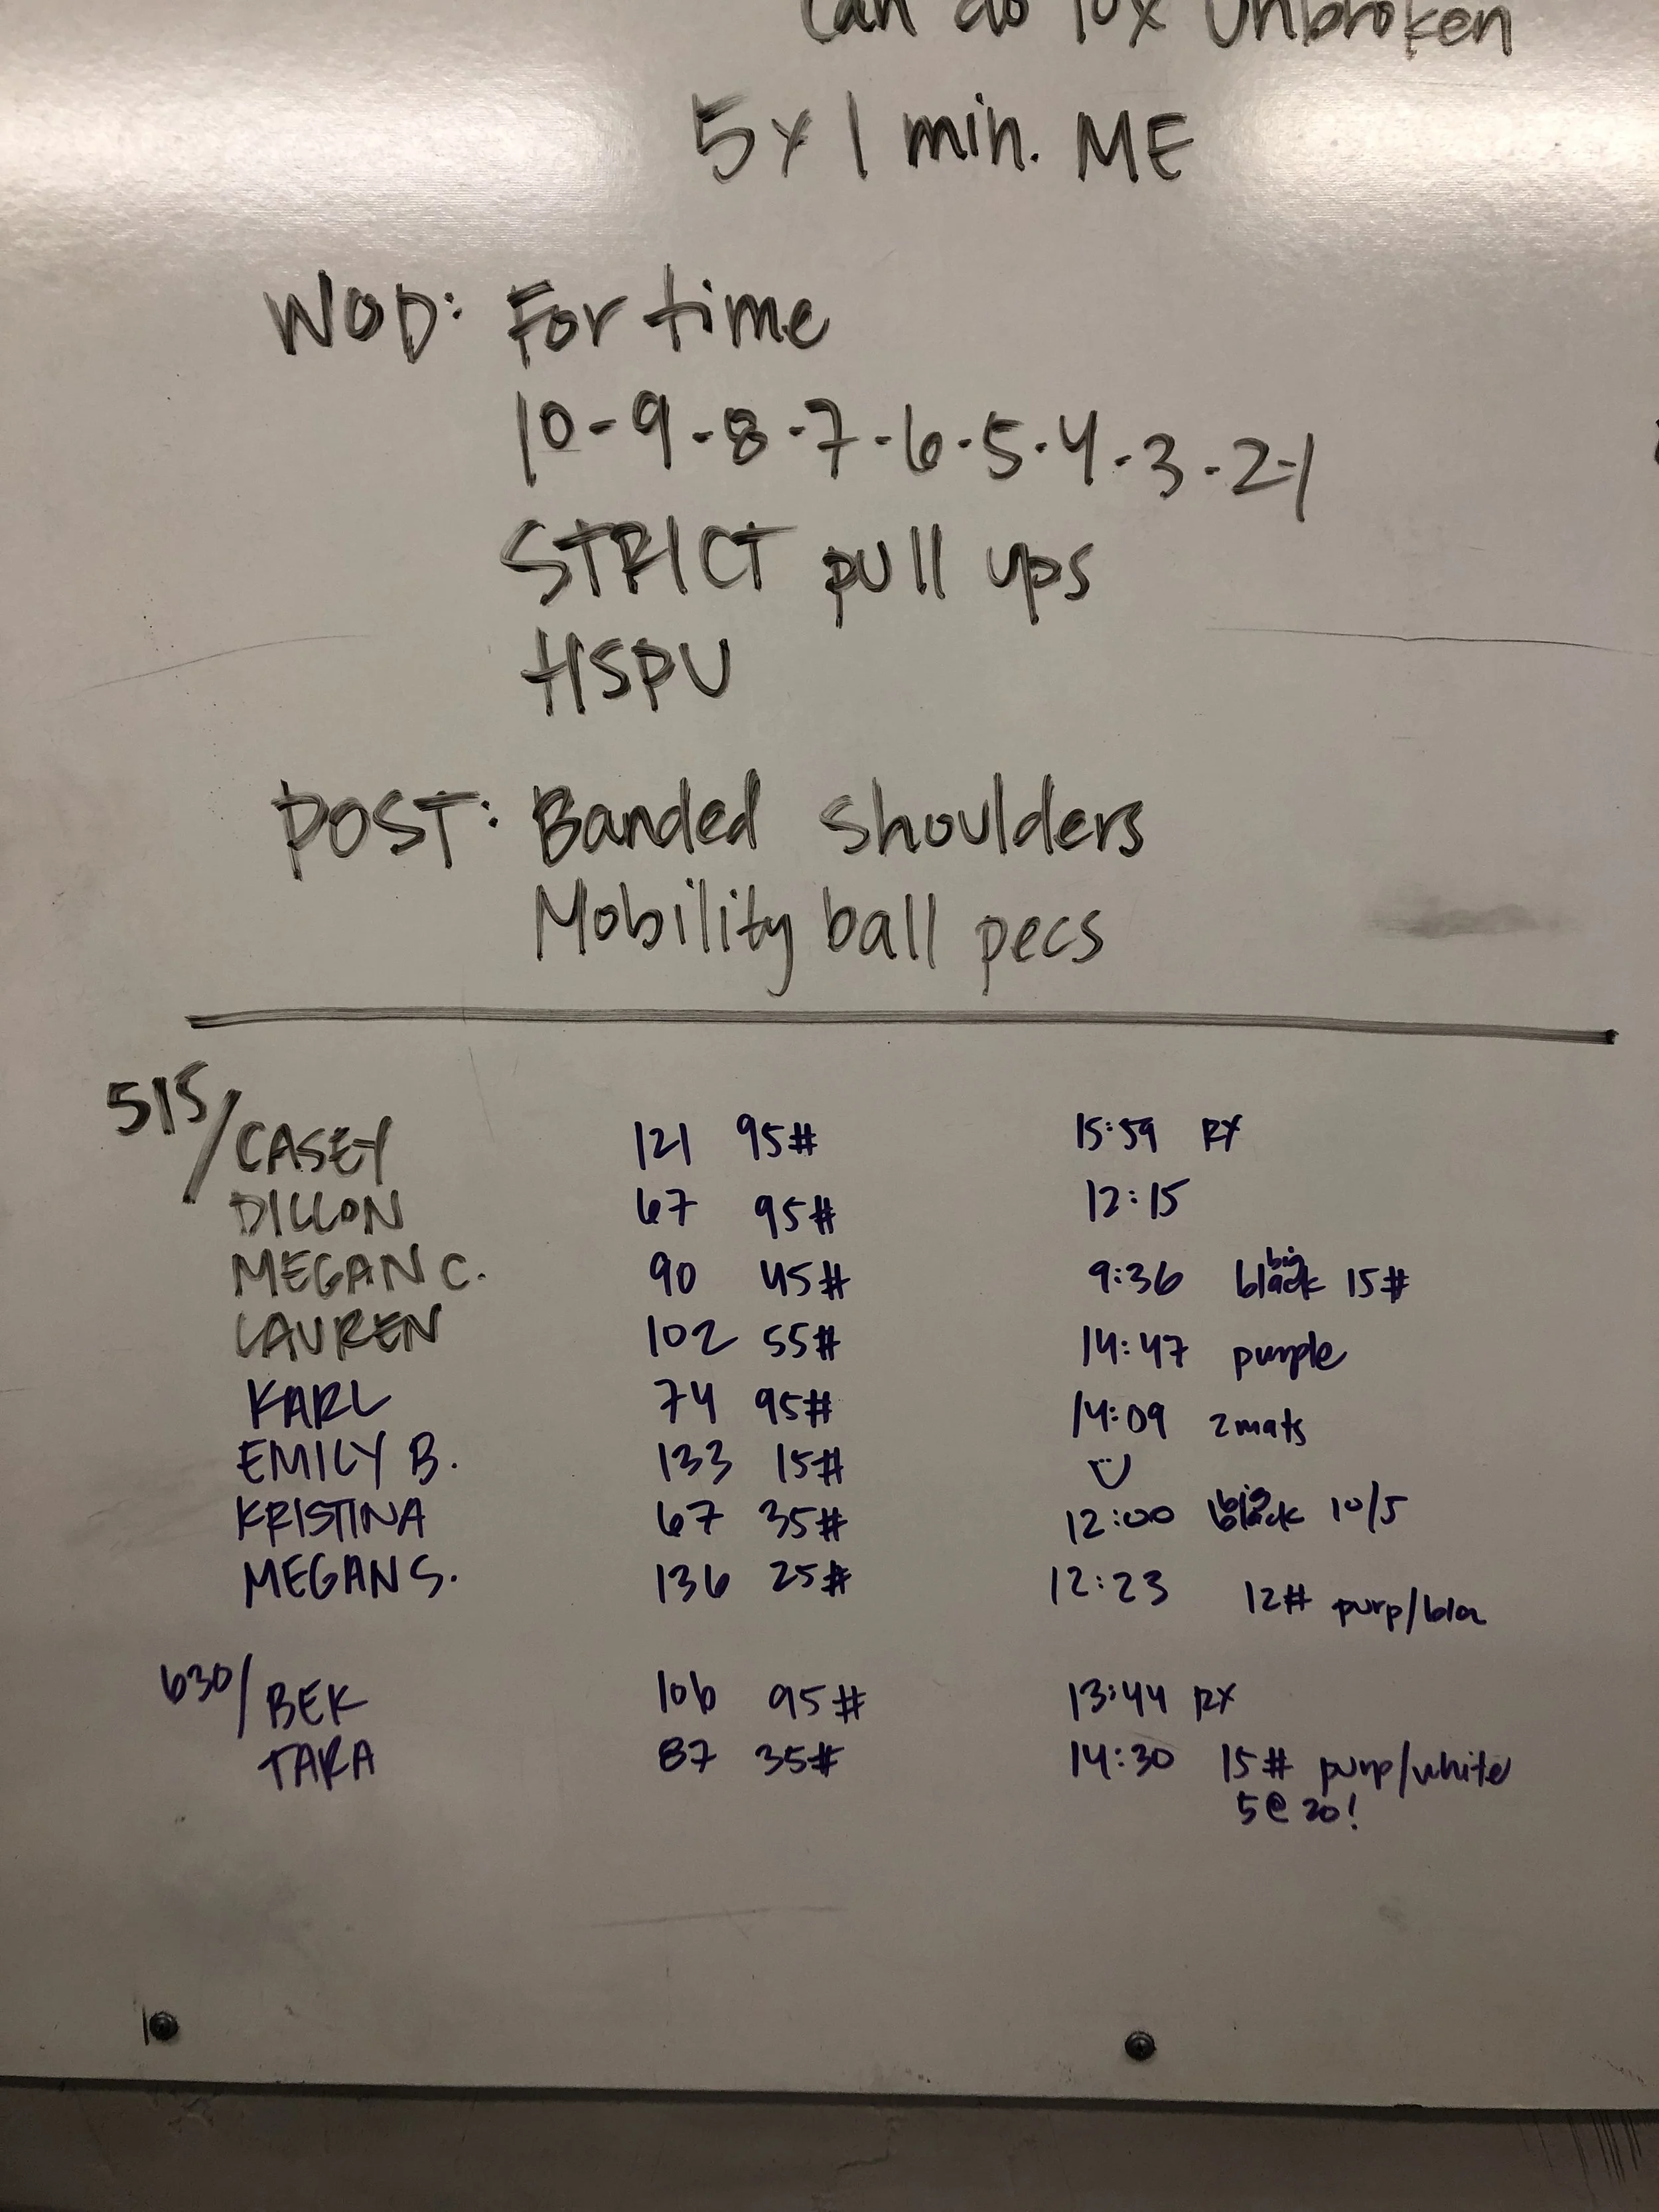 can do 10x Unbroken
5 x 1 min. ME
WOD: For time
10-9-8-7-6-5-4-3-2-1
STRICT pull ups
HSPU
POST: Banded shoulders
Mobility ball pecs
515/ CASEY 121 95# 15:59 RX
DILLON 67 95# 12:15
MEGAN C. 90 45# 9:36 big black 15#
LAUREN 102 55# 14:47 purple
KARL 74 95# 14:09 2 mats
EMILY B. 133 15#
KRISTINA 67 35# 12:00 big black 10/5
MEGAN S. 136 25# 12:23 12# purp/bla
630/ BEK 106 95# 13:44 RX
TARA 87 35# 14:30 15# purp/white
5@20!